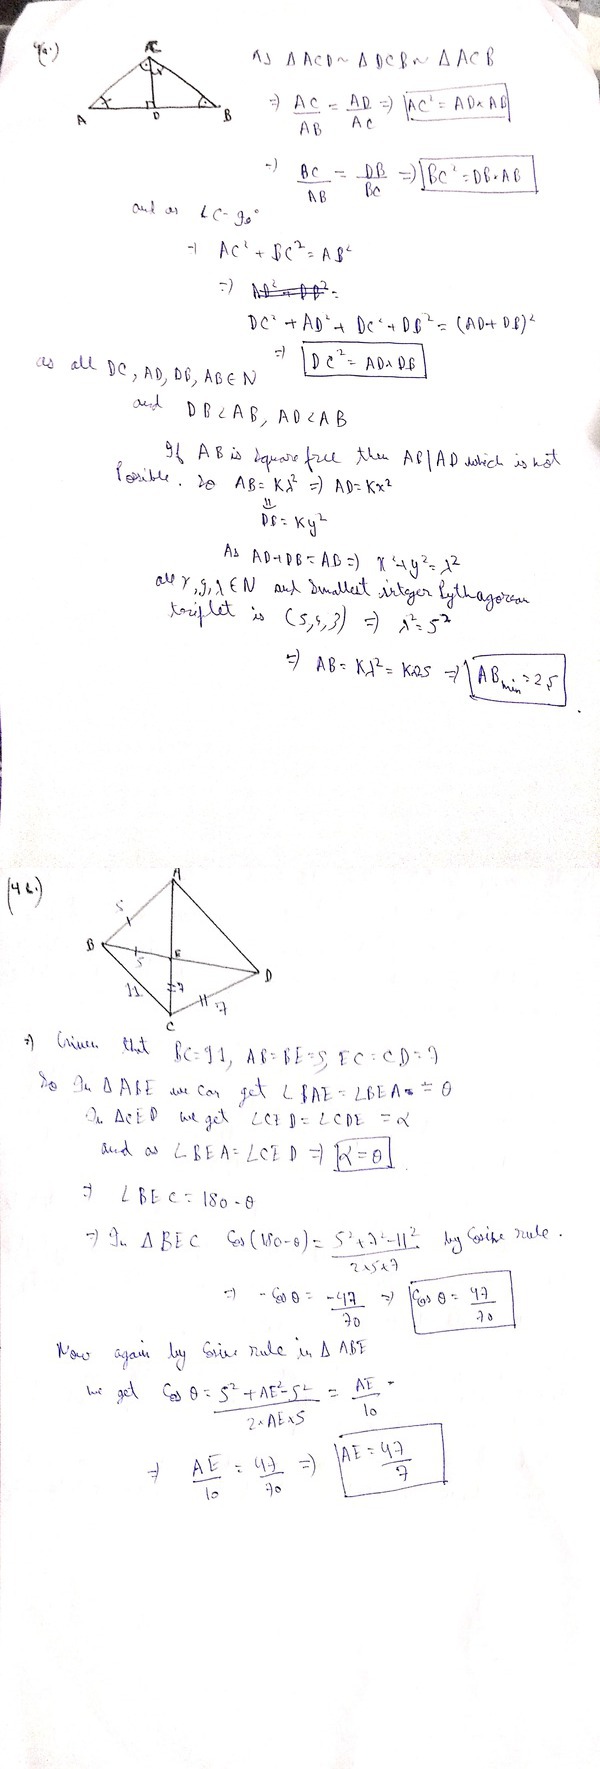 4a.)
C
A
D
B
As ΔACD ~ ΔDCB ~ ΔACB
=> AC/AB = AD/AC => AC² = AD×AB
=> BC/AB = DB/BC => BC² = DB×AB
and as ∠C = 90°
=> AC² + BC² = AB²
=> AD² + DB² =
DC² + AD² + DC² + DB² = (AD+DB)²
=> DC² = AD×DB
as all DC, AD, DB, AB ∈ N
and DB < AB, AD < AB
If AB is square free then AB|AD which is not
Possible. So AB = Kλ² => AD = Kx²
DB = Ky²
As AD+DB = AB => x²+y² = λ²
all x, y, λ ∈ N and smallest integer Pythagorean
triplet is (5,4,3) => λ² = 5²
=> AB = Kλ² = K25 => AB min = 25
(4b.)
A
5
B
E
5
D
11
7
7
C
=> Given that BC = 11, AB = BE = 5, EC = CD = 7
So In ΔABE we can get ∠BAE = ∠BEA = θ
In ΔCED we get ∠CED = ∠CDE = α
and as ∠BEA = ∠CED => α = θ
=> ∠BEC = 180 - θ
=> In ΔBEC Cos(180-θ) = (5²+7²-11²)/(2×5×7) by Cosine rule.
=> -Cosθ = -47/70 => Cosθ = 47/70
Now again by Cosine rule in ΔABE
we get Cosθ = (5²+AE²-5²)/(2×AE×5) = AE/10
=> AE/10 = 47/70 => AE = 47/7